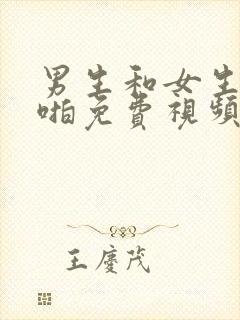 男生和女生
啪免費視頻
王慶茂